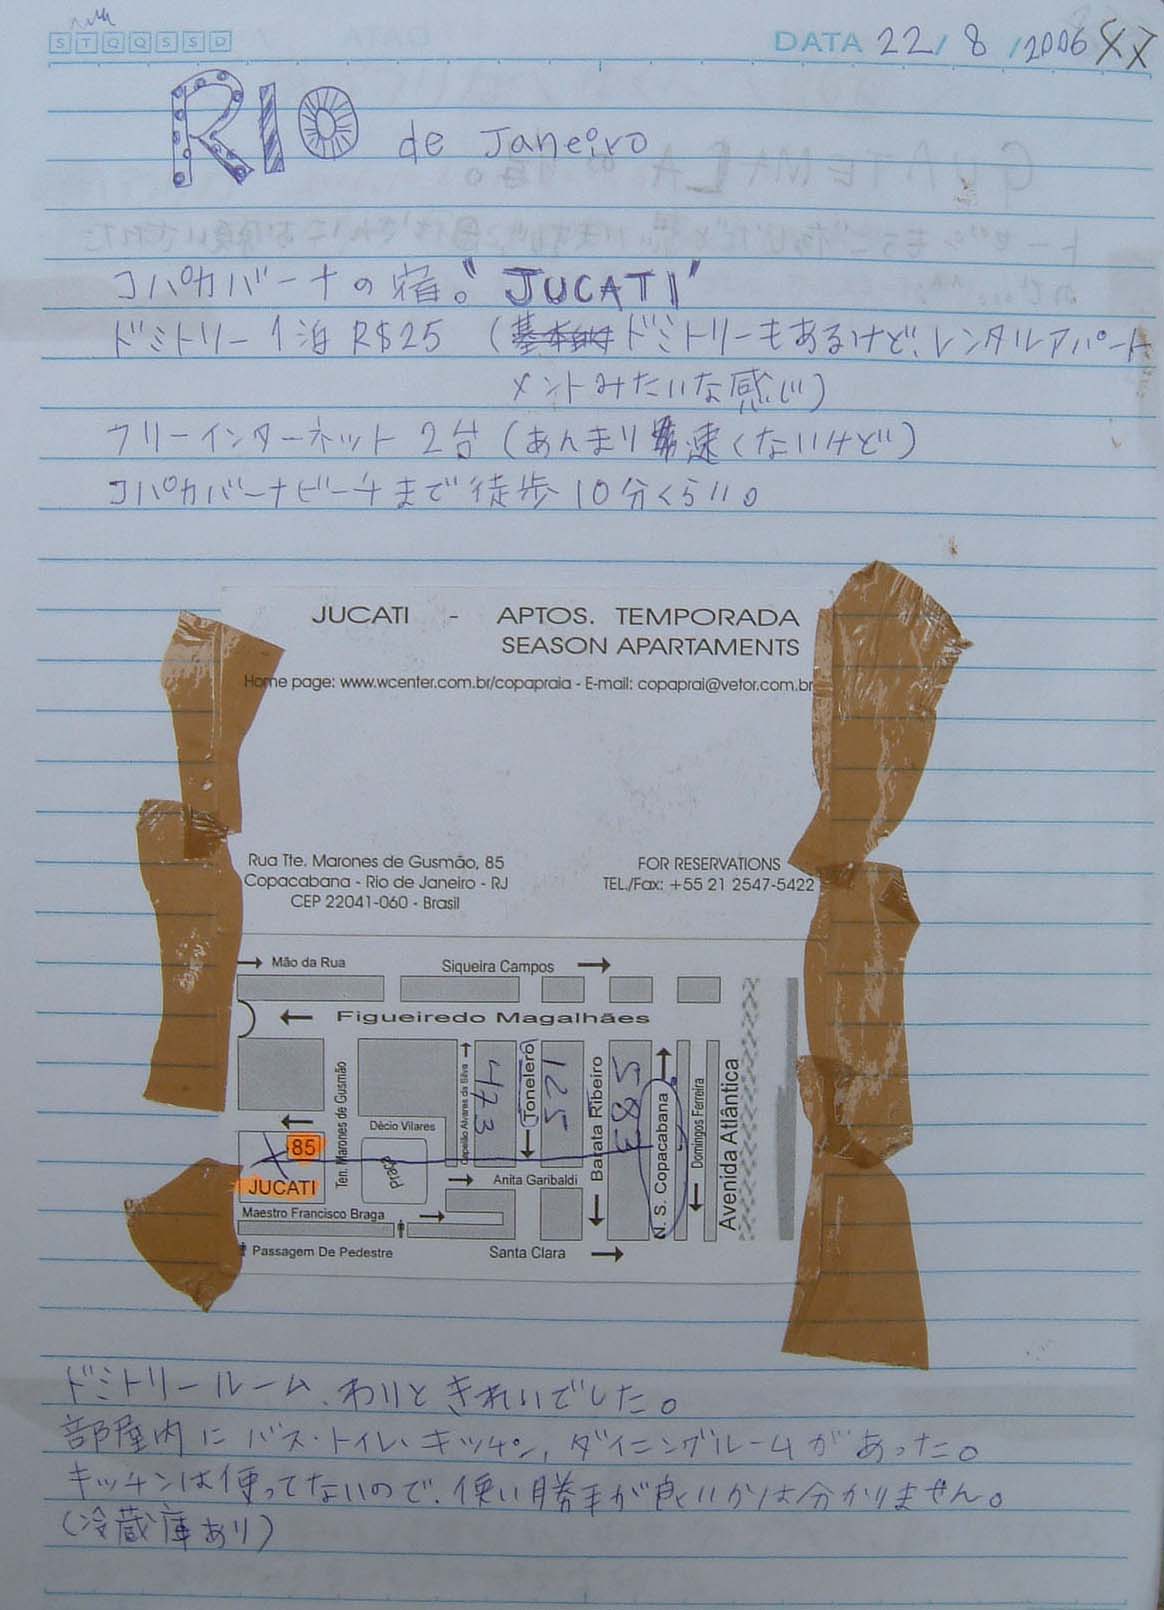 STQQSSD
DATA 22/8/2006
RIO de Janeiro
コパカバーナの宿。"JUCATI"
ドミトリー 1泊 R$25 (ドミトリーもあるけど、レンタルアパート
メントみたいな感じ)
フリーインターネット 2台(あんまり速くないけど)
コパカバーナビーチまで徒歩10分くらい。
JUCATI - APTOS. TEMPORADA
SEASON APARTAMENTS
Home page: www.wcenter.com.br/copapraia - E-mail: copaprai@vetor.com.br
Rua Tte. Marones de Gusmão, 85
Copacabana - Rio de Janeiro - RJ
CEP 22041-060 - Brasil
FOR RESERVATIONS
TEL./Fax: +55 21 2547-5422
Mão da Rua
Siqueira Campos
Figueiredo Magalhães
Ten. Marones de Gusmão
Décio Vilares
Praça
Capelão Alvares da Silva
473
Tonelero
125
Barata Ribeiro
583
N. S. Copacabana
Domingos Ferreira
Avenida Atlântica
85
JUCATI
Anita Garibaldi
Maestro Francisco Braga
Passagem De Pedestre
Santa Clara
ドミトリールーム、わりときれいでした。
部屋内にバス・トイレ・キッチン、ダイニングルームがあった。
キッチンは使ってないので、使い勝手が良いかは分かりません。
(冷蔵庫あり)